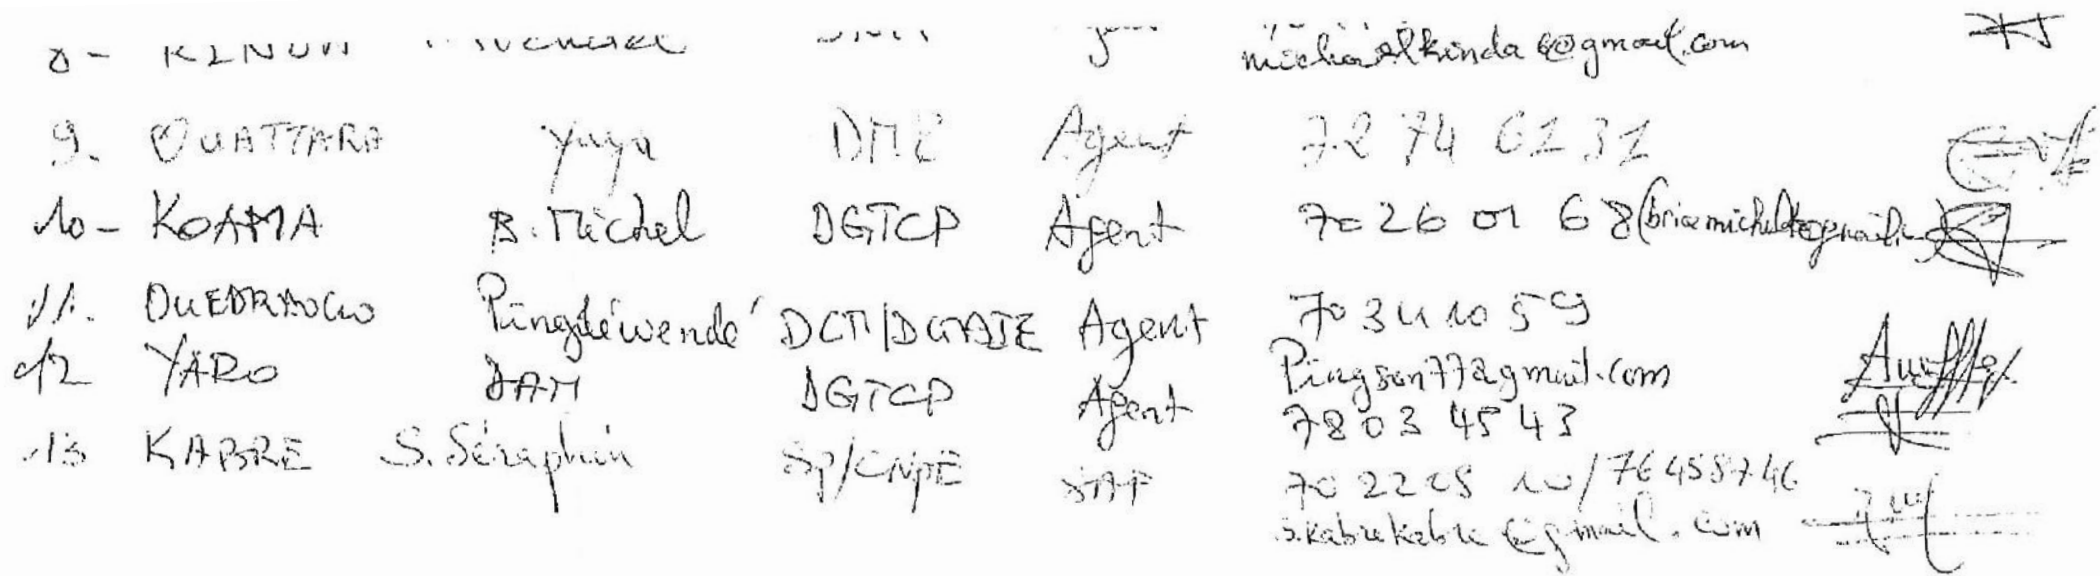 8-
michaelkinda6@gmail.com
9. OUATTARA Yaya Agent 72 74 61 31
10- KOAMA B. Michel DGTCP Agent 70 26 01 68
11. OUEDRAOGO Pingdéwendé Agent 70 34 10 59
Pingson77@gmail.com
12 YARO DAM DGTCP Agent 78 03 45 43
13 KABRE S. Séraphin SP/CNPE 70 22 05 10/76458746
s.kabrekabre@gmail.com